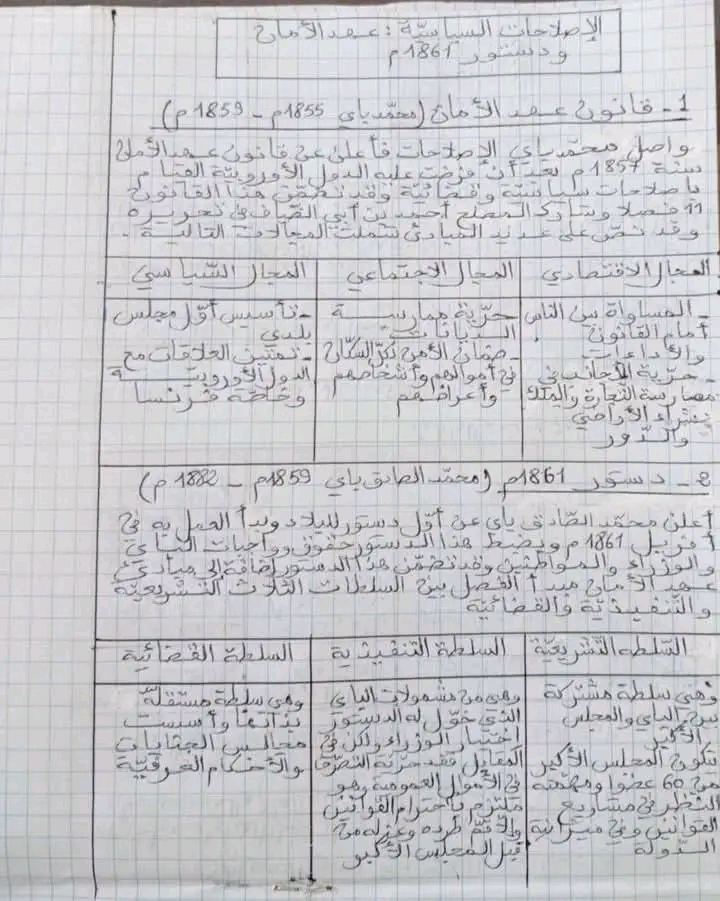 الإصلاحات السياسيّة : عهد الأمان
ودستور 1861م
1 - قانون عهد الأمان (محمّد باي 1855م - 1859م)
واصل محمّد باي الإصلاحات فأعلن عن قانون عهد الأمان
سنة 1857م بعد أن فرضت عليه الدول الأوروبيّة القيام
بإصلاحات سياسيّة وقضائيّة وقد تضمّن هذا القانون
11 فصلا وشارك المصلح أحمد بن أبي الضّياف في تحريره
وقد نصّ على عديد المبادئ شملت المجالات التالية .
المجال الاقتصادي
المجال الاجتماعي
المجال السّياسي
- المساواة بين الناس
أمام القانون
والأداءات
- حرّية الأجانب في
ممارسة التّجارة
بشراء الأراضي
والدّور
حرّية ممارسة
الديانات
- ضمان الأمن لكلّ السكّان
في أموالهم وأشخاصهم
وأعراضهم
- تأسيس أوّل مجلس
بلدي
- تمتين العلاقات مع
الدول الأوروبيّة
وخاصّة فرنسا
2 - دستور 1861م (محمّد الصادق باي 1859م - 1882م)
أعلن محمّد الصّادق باي عن أوّل دستور للبلاد وبدأ العمل به في
أفريل 1861م ويضبط هذا الدستور حقوق وواجبات الباي
والوزراء والمواطنين وقد تضمّن هذا الدستور إضافة إلى مبادئ
عهد الأمان مبدأ الفصل بين السلطات الثلاث التشريعيّة
والتّنفيذيّة والقضائيّة
السّلطة التّشريعيّة
السلطة التنفيذية
السلطة القضائيّة
وهي سلطة مشتركة
بين الباي والمجلس
الأكبر
يتكون المجلس الأكبر
من 60 عضوا ومهمّته
النّظر في مشاريع
القوانين وفي ميزانية
الدّولة
وهي من مشمولات الباي
الذي خوّل له الدستور
اختيار الوزراء ولكن في
المقابل فقد حرّية التصرّف
في الأموال العمومية وهو
ملتزم باحترام القوانين
وإلّا تمّ طرده وعزله من
قبل المجلس الأكبر
وهي سلطة مستقلّة
بذاتها وأسست
مجالس الجنايات
والأحكام العرفيّة